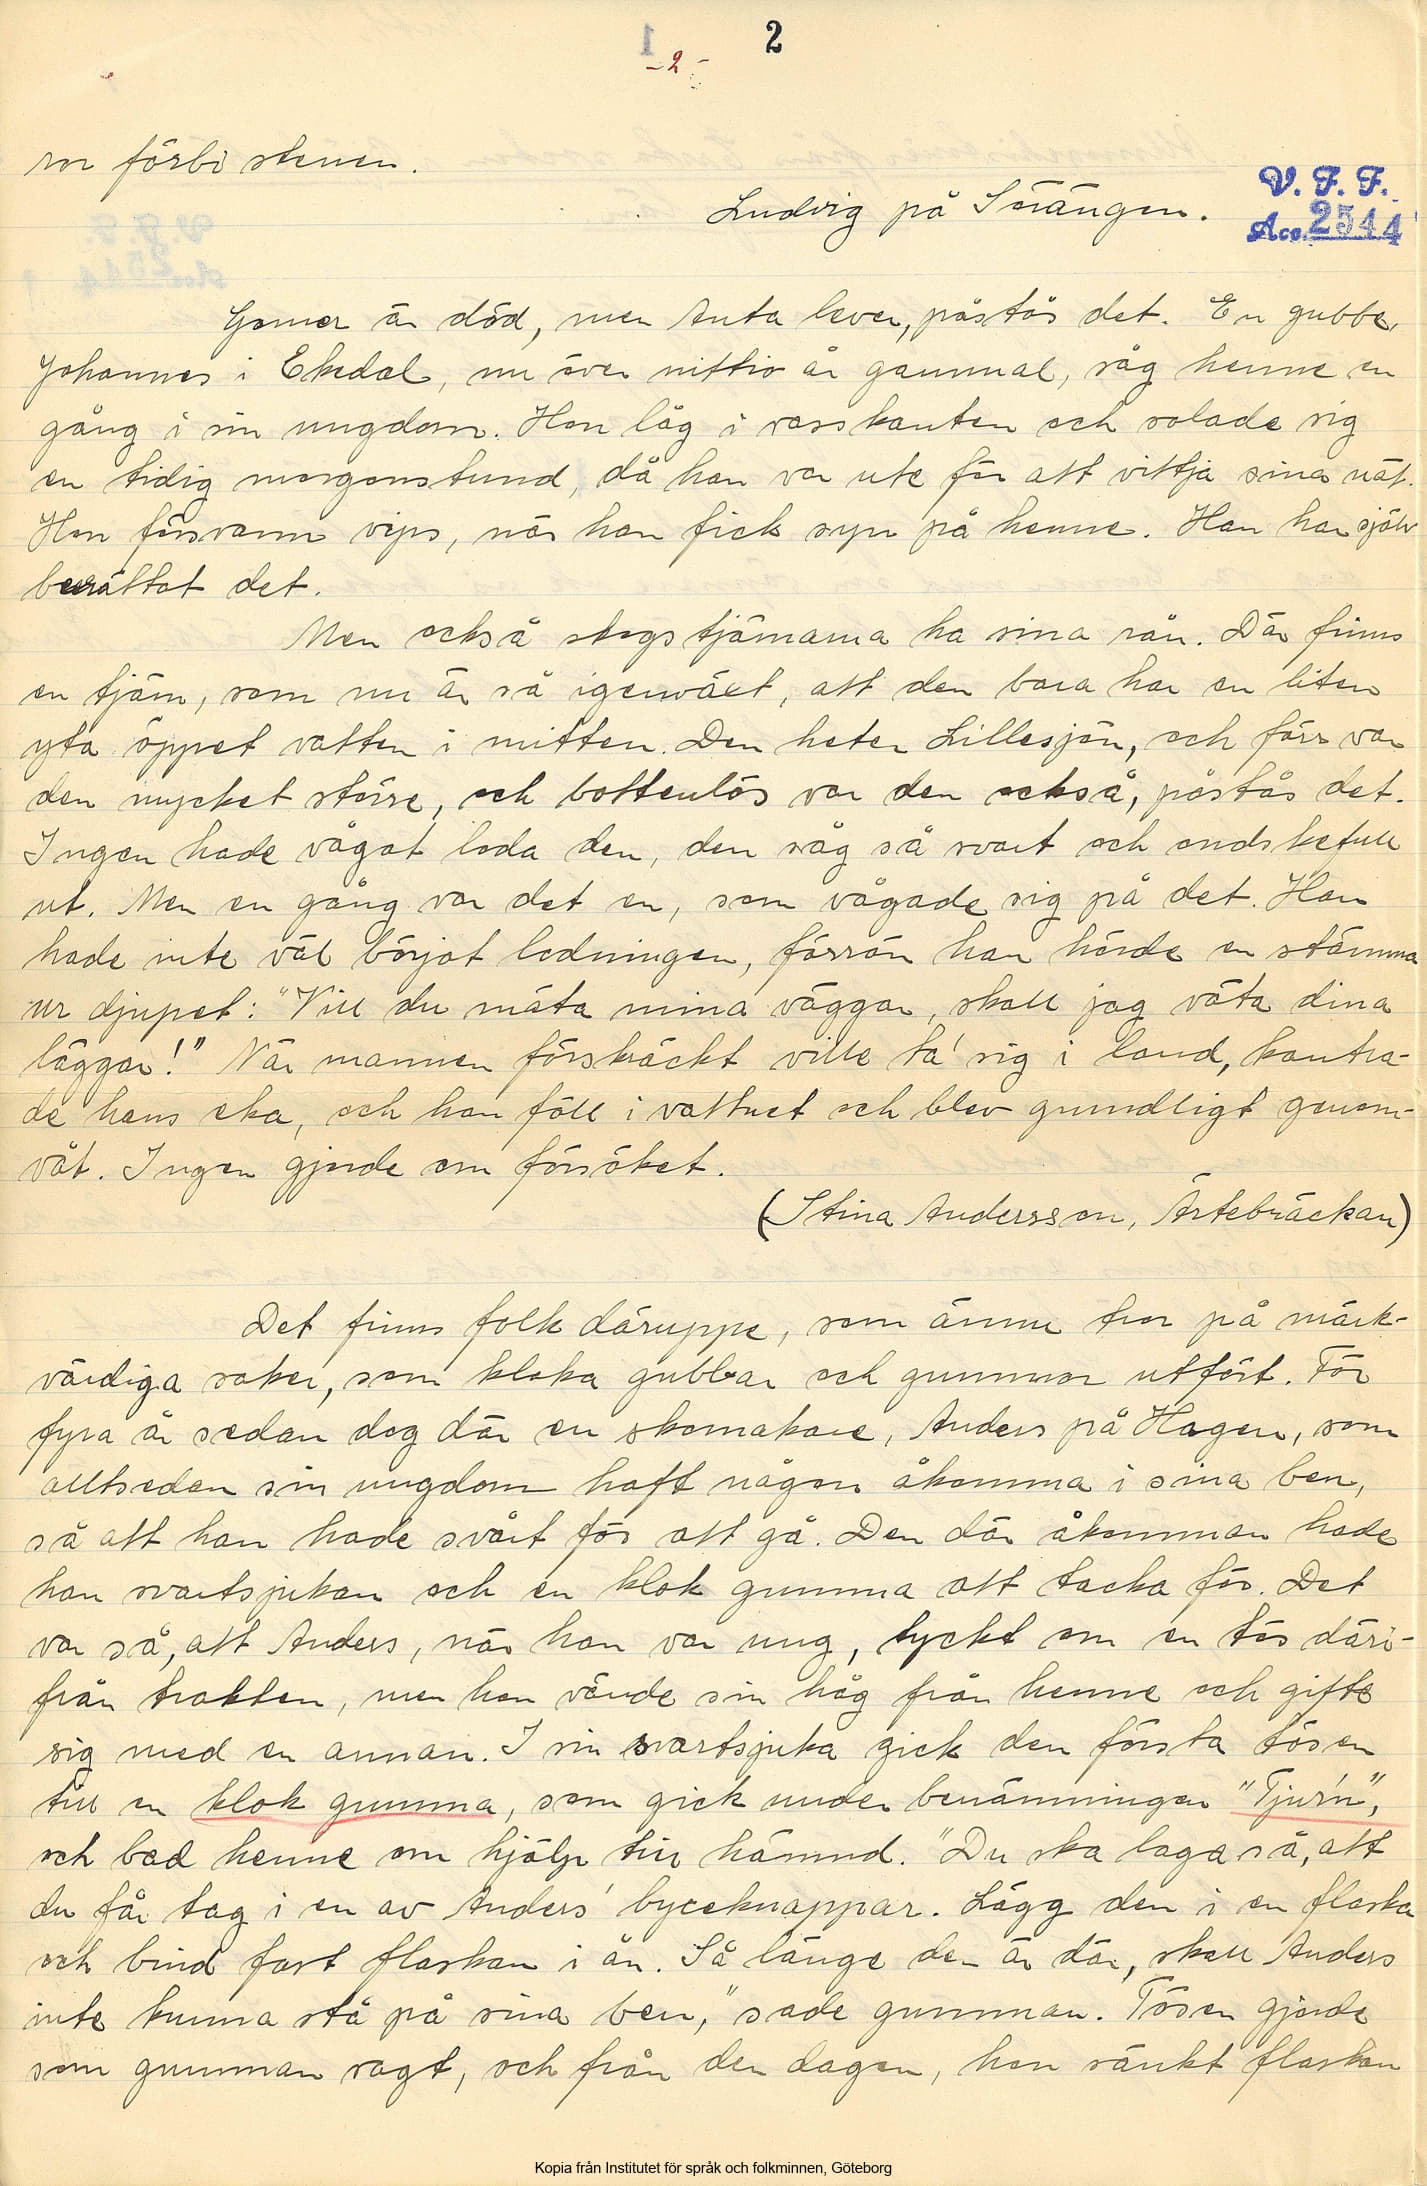 2
- 2 -
ror förbi stenen.
Ludvig på Sörängen.
V. F. F.
Acc. 2544
Gomer är död, men Anta lever, påstås det. En gubbe,
Johannes i Ekedal, nu över nittio år gammal, såg henne en
gång i sin ungdom. Hon låg i vasskanten och solade sig
en tidig morgonstund, då han var ute för att vittja sina nät.
Hon försvann vips, när han fick syn på henne. Han har själv
berättat det.
Men också skogstjärnarna ha sina rån. Där finns
en tjärn, som nu är så igenväxt, att den bara har en liten
yta öppet vatten i mitten. Den heter Lillesjön, och förr var
den mycket större, och bottenlös var den också, påstås det.
Ingen hade vågat loda den, den såg så svart och ondskefull
ut. Men en gång var det en, som vågade sig på det. Han
hade inte väl börjat lodningen, förrän han hörde en stämma
ur djupet: "Vill du mäta mina väggar, skall jag väta dina
läggar!" När mannen förskräckt ville ta' sig i land, kantra-
de hans eka, och han föll i vattnet och blev grundligt genom-
våt. Ingen gjorde om försöket.
(Stina Andersson, Ärtebräckan)
Det finns folk däruppe, som ännu tror på märk-
värdiga saker, som kloka gubbar och gummor utfört. För
fyra år sedan dog där en skomakare, Anders på Hagen, som
alltsedan sin ungdom haft någon åkomma i sina ben,
så att han hade svårt för att gå. Den där åkomman hade
han svartsjukan och en klok gumma att tacka för. Det
var så, att Anders, när han var ung, tyckt om en tös däri-
från trakten, men han vände sin håg från henne och gifte
sig med en annan. I sin svartsjuka gick den första tösen
till en klok gumma, som gick under benämningen "Tjur'n",
och bad henne om hjälp till hämnd. "Du ska laga så, att
du får tag i en av Anders' byxeknappar. Lägg den i en flaska
och bind fast flaskan i ån. Så länge den är där, skall Anders
inte kunna stå på sina ben," sade gumman. Tösen gjorde
som gumman sagt, och från den dagen, hon sänkt flaskan
Kopia från Institutet för språk och folkminnen, Göteborg